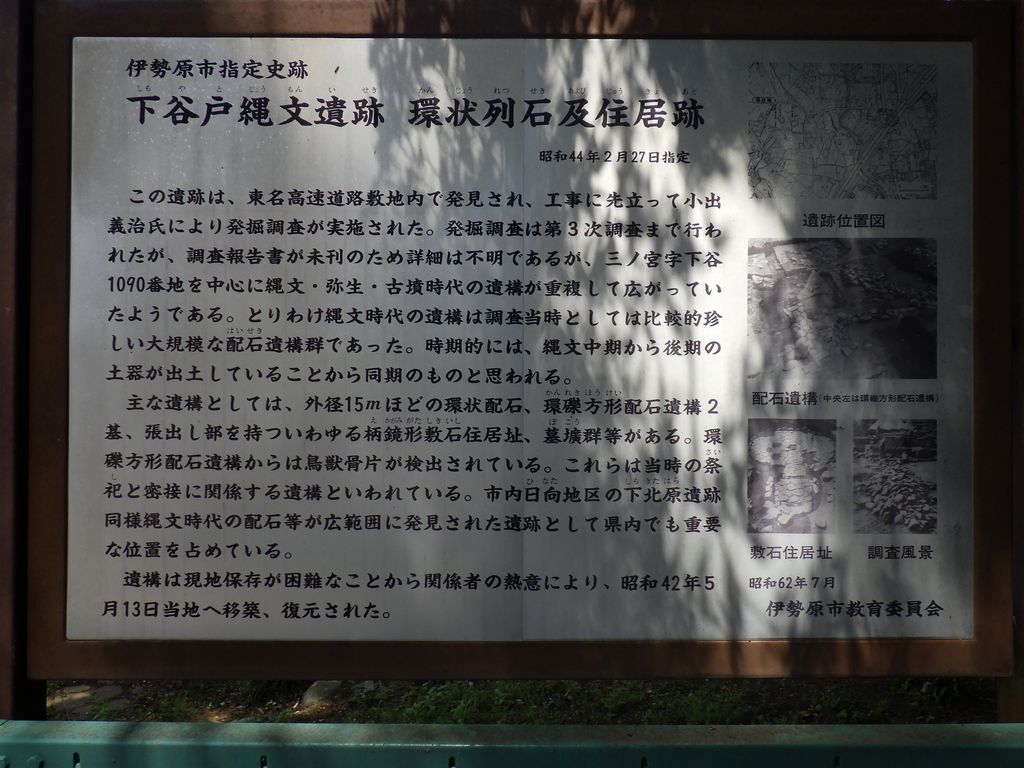 伊勢原市指定史跡
下谷戸縄文遺跡 環状列石及住居跡
昭和44年2月27日指定
この遺跡は、東名高速道路敷地内で発見され、工事に先立って小出
義治氏により発掘調査が実施された。発掘調査は第3次調査まで行わ
れたが、調査報告書が未刊のため詳細は不明であるが、三ノ宮字下谷
1090番地を中心に縄文・弥生・古墳時代の遺構が重複して広がってい
たようである。とりわけ縄文時代の遺構は調査当時としては比較的珍
しい大規模な配石遺構群であった。時期的には、縄文中期から後期の
土器が出土していることから同期のものと思われる。
主な遺構としては、外径15mほどの環状配石、環礫方形配石遺構2
基、張出し部を持ついわゆる柄鏡形敷石住居址、墓壙群等がある。環
礫方形配石遺構からは鳥獣骨片が検出されている。これらは当時の祭
祀と密接に関係する遺構といわれている。市内日向地区の下北原遺跡
同様縄文時代の配石等が広範囲に発見された遺跡として県内でも重要
な位置を占めている。
遺構は現地保存が困難なことから関係者の熱意により、昭和42年5
月13日当地へ移築、復元された。
遺跡位置図
配石遺構(中央左は環礫方形配石遺構)
敷石住居址 調査風景
昭和62年7月
伊勢原市教育委員会